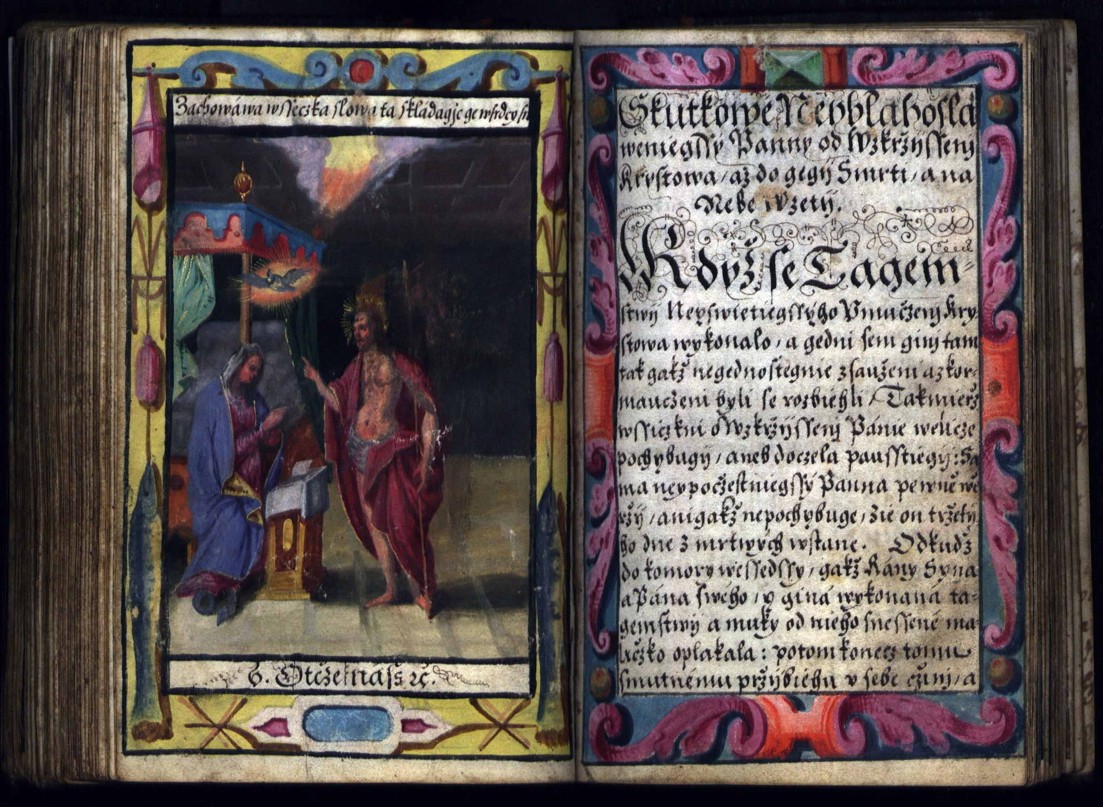 Zachowáwa wssecka slowa ta skladagjc ge w srdcy sw
6. Otčzeknáss ꝛč.
Skutkowé Neyblahosla
weniegssý Panny od Wzkřžyssenj
Krystowa / až do gegij Smrti / a na
Nebe Wzetij.
Když se Tagem-
stwij Neyswietiegssýho Vmučzenj Kry
stowa wykonalo / a gedni sem ginij tam
tak gakž negednostegnie zsauženi a zkor-
maučzeni byli se rozbiehli / Takmierž
wssickni o Wzkřžýssenj Pánie weucze
pochybugij / aneb doczela pausstiegij: Sa
ma neypočzestniegssý Panna pewnie wie
ržij / aniž gakž nepochybuge / žie on tržetij
ho dne z mrtwých wstane. Odkudž
do komory wessedssy / gakž Rány Syna
a Pána swého / y giná wykonaná ta-
gemstwij a muky od niého snessené ma-
ličžko oplakala: potom konecz tomu
smutnému pržijbiehu v sebe čžinj / a